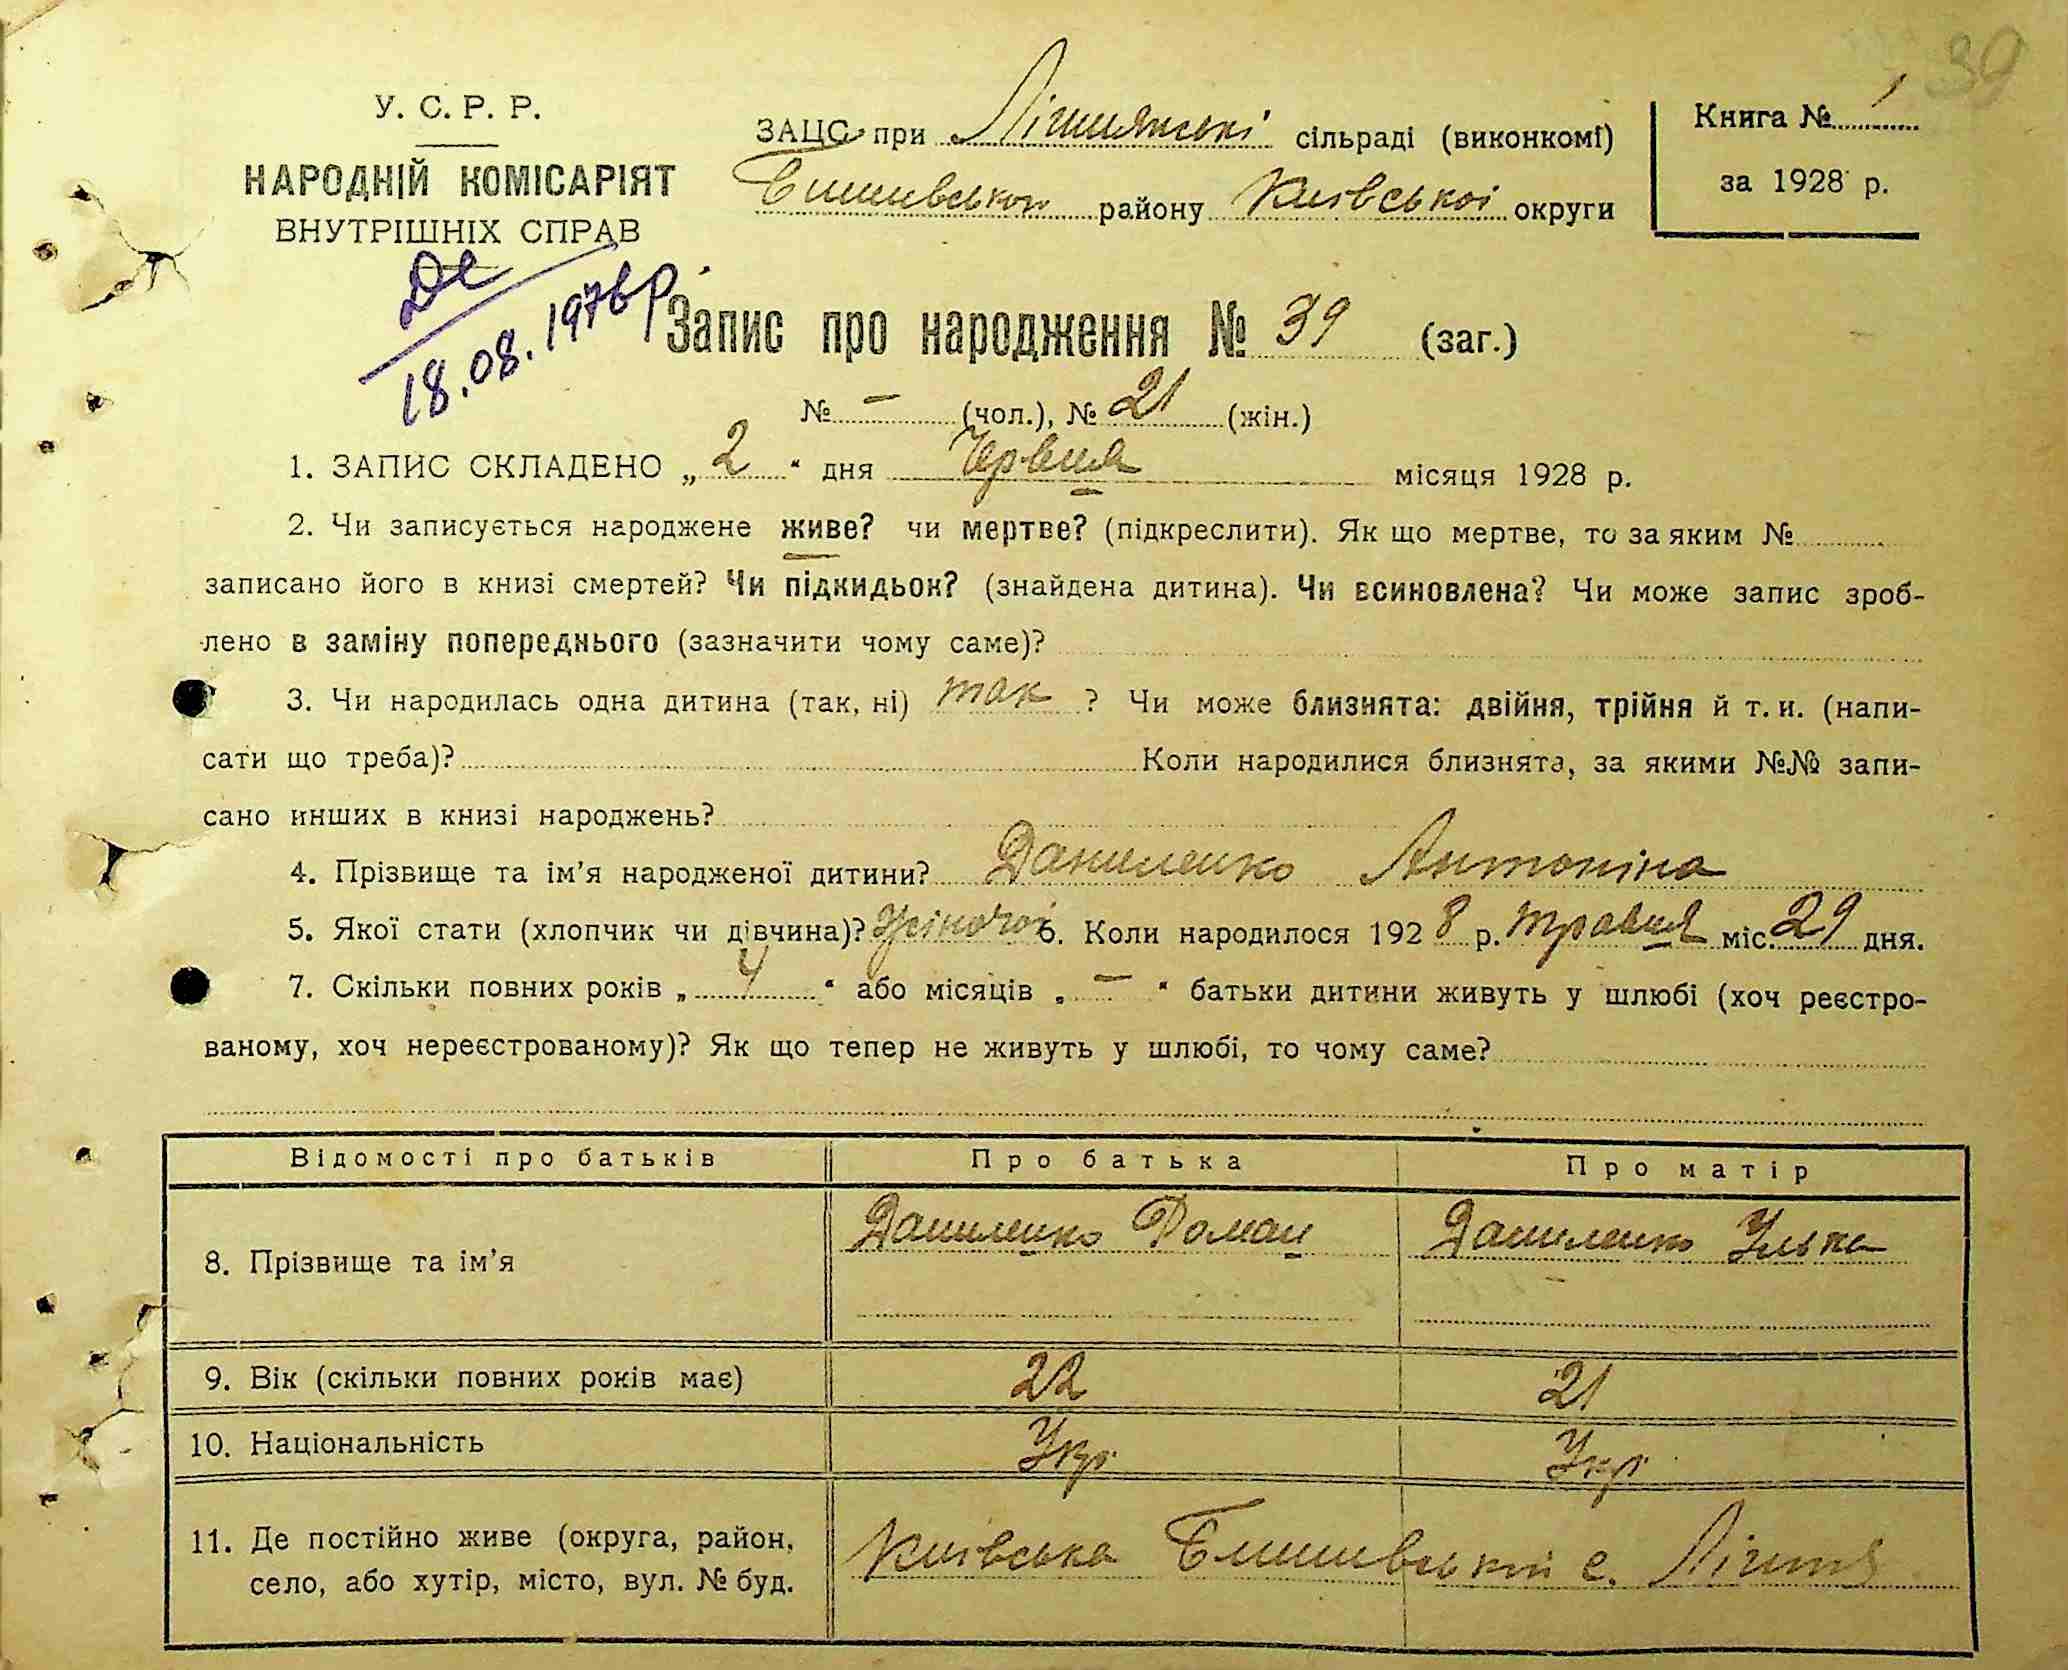 39
У. С. Р. Р.
НАРОДНІЙ КОМІСАРІЯТ
ВНУТРІШНІХ СПРАВ
ЗАЦС при сільраді (виконкомі)
району Київської округи
Книга № 1
за 1928 р.
18.08.1976р.
Запис про народження № 39 (заг.)
№ – (чол.), № 21 (жін.)
1. ЗАПИС СКЛАДЕНО „ 2 “ дня Червня місяця 1928 р.
2. Чи записується народжене живе? чи мертве? (підкреслити). Як що мертве, то за яким №
записано його в книзі смертей? Чи підкидьок? (знайдена дитина). Чи всиновлена? Чи може запис зроб-
лено в заміну попереднього (зазначити чому саме)?
3. Чи народилась одна дитина (так, ні) так ? Чи може близнята: двійня, трійня й т. и. (напи-
сати що треба)? Коли народилися близнята, за якими №№ запи-
сано инших в книзі народжень?
4. Прізвище та ім’я народженої дитини? Даниленко Антоніна
5. Якої стати (хлопчик чи дівчина)? Жіночої 6. Коли народилося 1928 р. травня міс. 29 дня.
7. Скільки повних років „ 4 “ або місяців „ – “ батьки дитини живуть у шлюбі (хоч реєстро-
ваному, хоч нереєстрованому)? Як що тепер не живуть у шлюбі, то чому саме?
Відомості про батьків Про батька Про матір
8. Прізвище та ім’я Даниленко Роман Даниленко Улька
9. Вік (скільки повних років має) 22 21
10. Національність Укр. Укр.
11. Де постійно живе (округа, район, село, або хутір, місто, вул. № буд. Київська с.